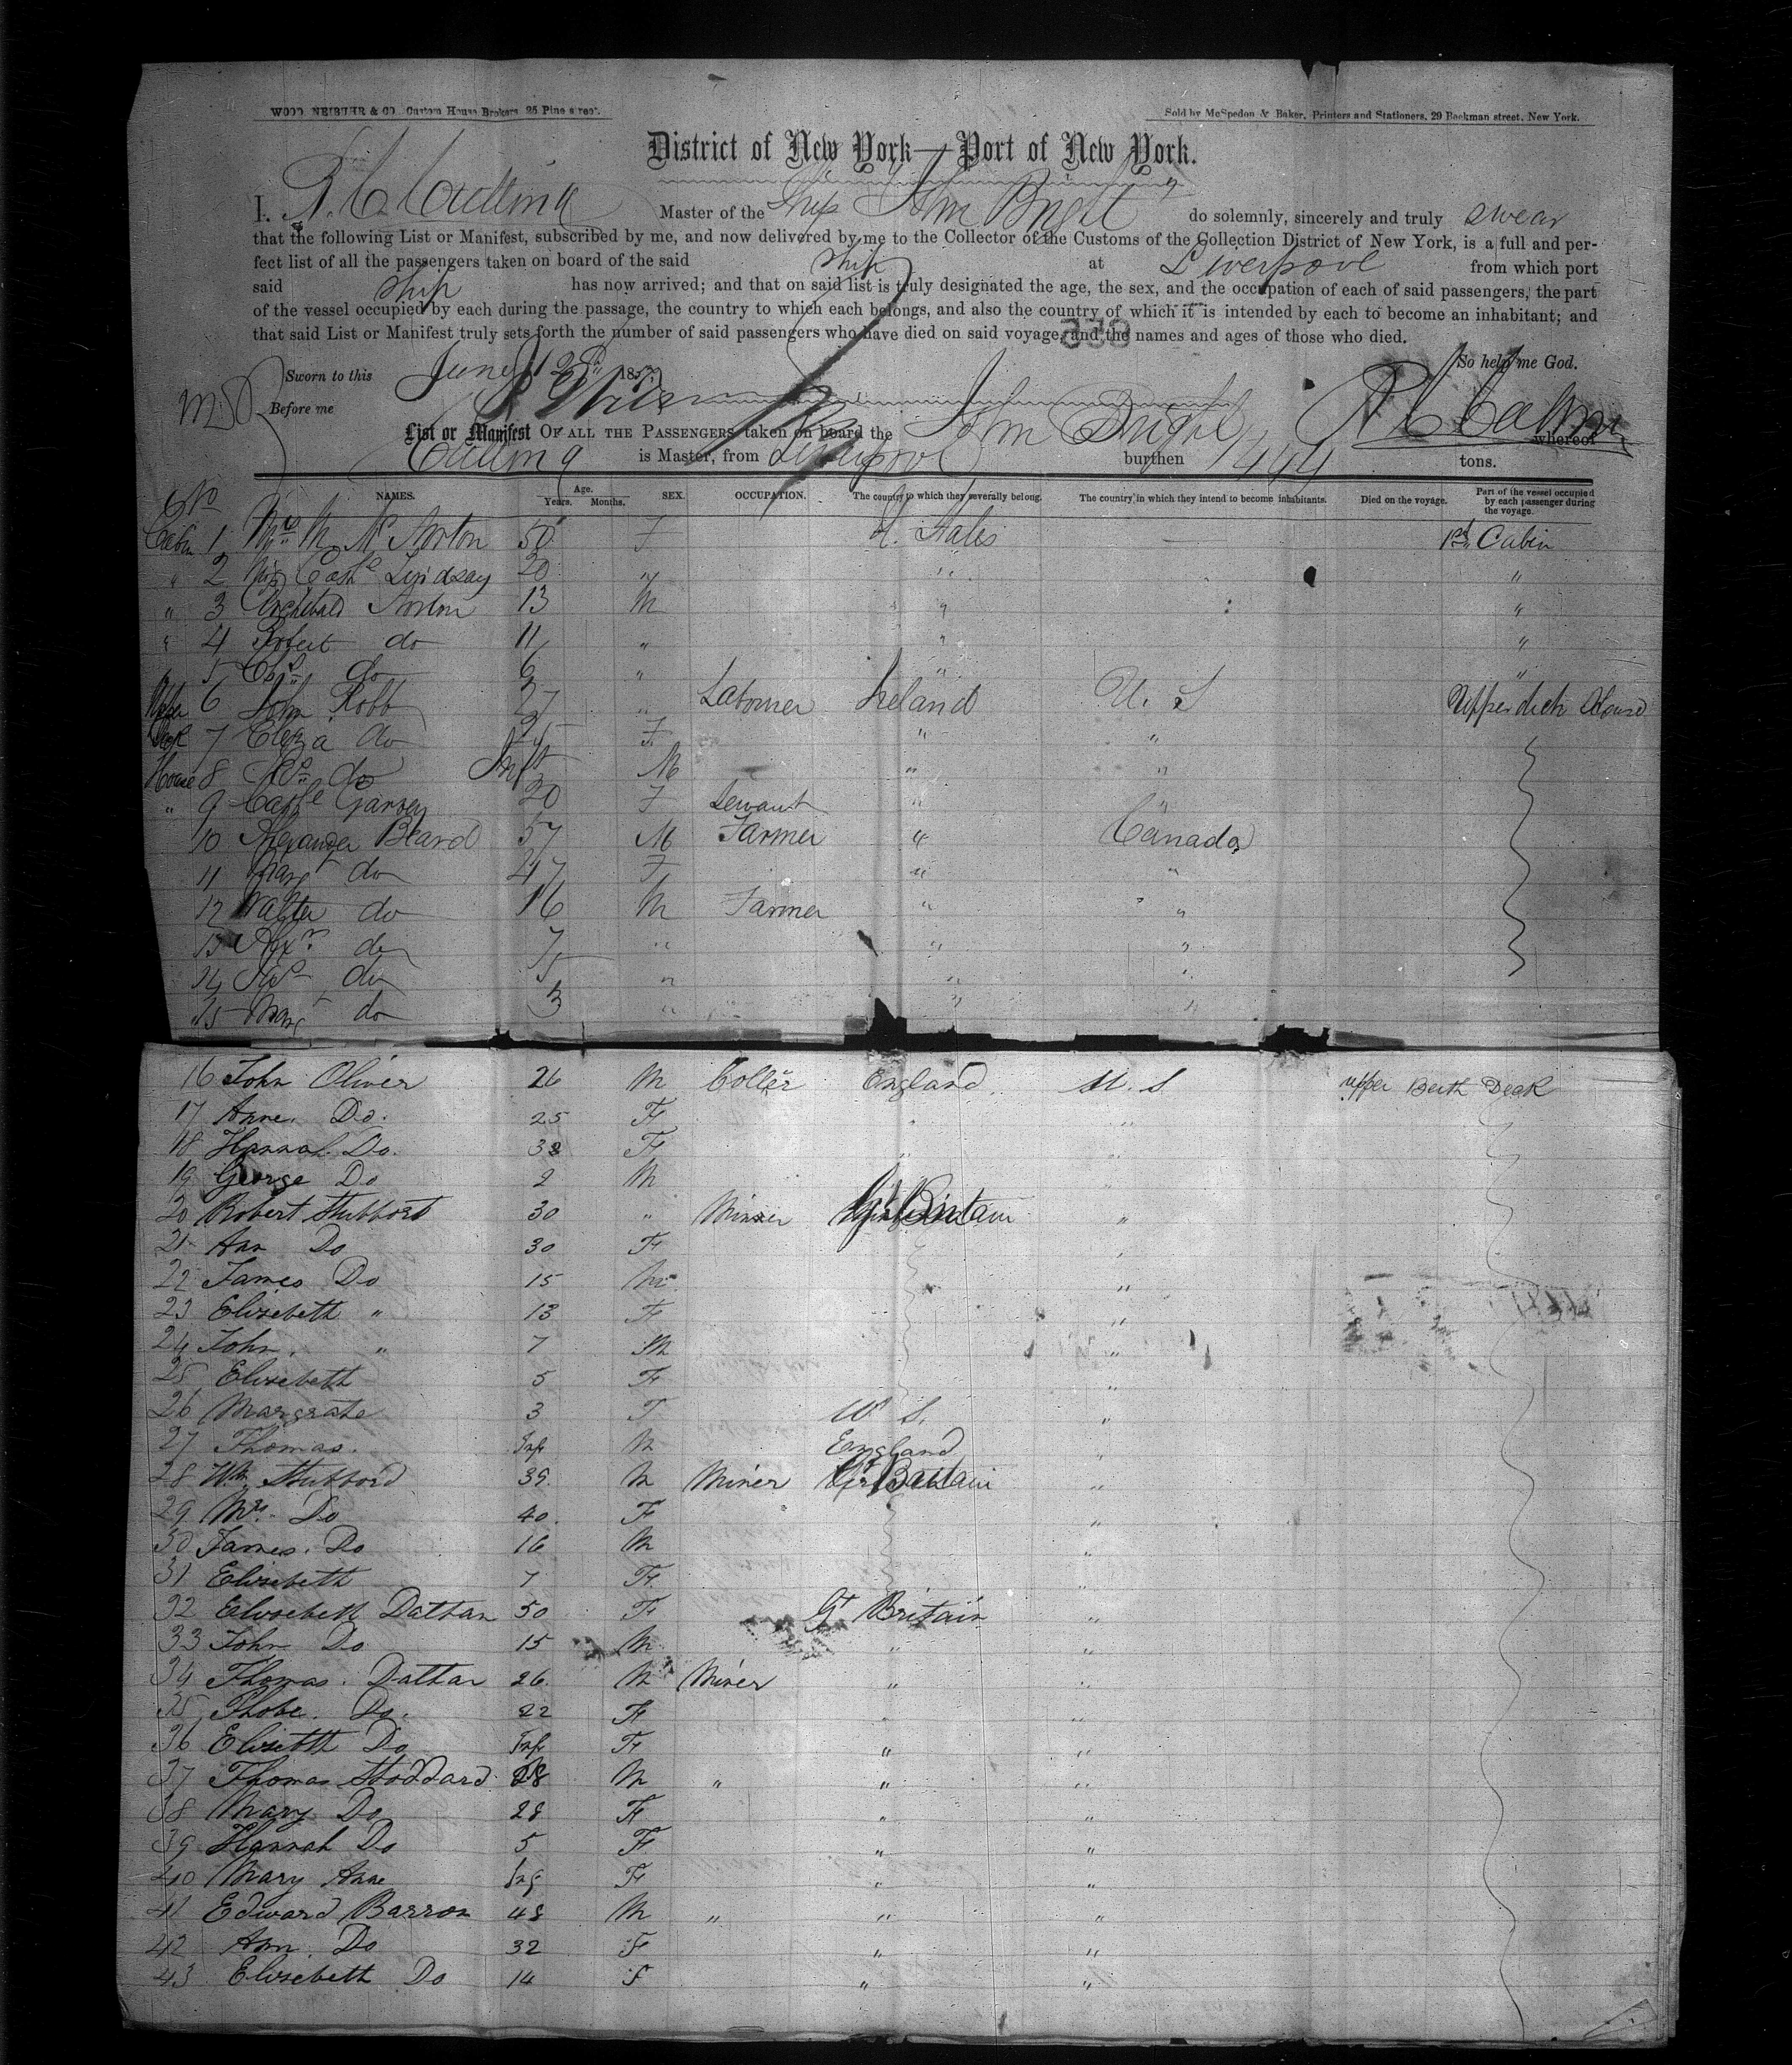 WOOD, NEIBUHR & CO. Custom House Brokers, 25 Pine street.
Sold by McSpedon & Baker, Printers and Stationers, 29 Beekman street, New York.
District of New York—Port of New York.
I, Master of the Ship John Bright do solemnly, sincerely and truly swear
that the following List or Manifest, subscribed by me, and now delivered by me to the Collector of the Customs of the Collection District of New York, is a full and per-
fect list of all the passengers taken on board of the said ship at Liverpool from which port
said ship has now arrived; and that on said list is truly designated the age, the sex, and the occupation of each of said passengers, the part
of the vessel occupied by each during the passage, the country to which each belongs, and also the country of which it is intended by each to become an inhabitant; and
that said List or Manifest truly sets forth the number of said passengers who have died on said voyage, and the names and ages of those who died.
So help me God.
Sworn to this June 185
Before me
List or Manifest OF ALL THE PASSENGERS taken on board the John Bright whereof
Cutting is Master, from Liverpool burthen 1444 tons.
No
NAMES. Age. Years. Months. SEX. OCCUPATION. The country to which they severally belong. The country in which they intend to become inhabitants. Died on the voyage. Part of the vessel occupied by each passenger during the voyage.
Cabin 1 Mrs M N Norton 50 F U. States 1st Cabin
" 2 Miss Cathe Lindsay 20 " " "
" 3 Archibald Norton 13 M " "
" 4 Robert do 11 " " "
5 do 6 " " "
Upper 6 John Robb 27 " Laborer Ireland U. S Upper deck House
Deck 7 Eliza do 25 F " "
House 8 do Inft M " "
" 9 Cathe Garvey 20 F Servant " "
10 Alexander Beard 57 M Farmer " Canada
11 Margt do 47 F " "
12 Walter do 16 M Farmer " "
13 Alexr do 7 " " "
14 do 5 " " "
15 Margt do 3 " " "
16 John Oliver 26 M Collier England U. S upper Berth Deck
17 Anne Do. 25 F " "
18 Hannah Do. F " "
19 George Do 2 M
20 Robert Stubbord 30 " Minner Gt Britain "
21 Ann Do 30 F "
22 James Do 15 M "
23 Elisebeth " 13 F "
24 John " 7 M "
25 Elisebeth 5 F "
26 Margrate 3 F U S. "
27 Thomas. Inf M England "
28 Wm Stubbord 39 M Miner Gt Britain "
29 Mrs Do 40 F "
30 James. Do 16 M "
31 Elisebeth 7 F "
32 Elisebeth Dattan 50 F Gt Britain "
33 John Do 15 M " "
34 Thomas Dattan 26 M Miner " "
35 Phobe. Do. 22 F " "
36 Elisebth Do Inf F " "
37 Thomas Stoddard 28 M " " "
38 Mary Do 28 F " "
39 Hannah Do 5 F " "
40 Mary Anne Inf F " "
41 Edward Barron 48 M " " "
42 Ann Do 32 F " "
43 Elisebeth Do 14 F " "